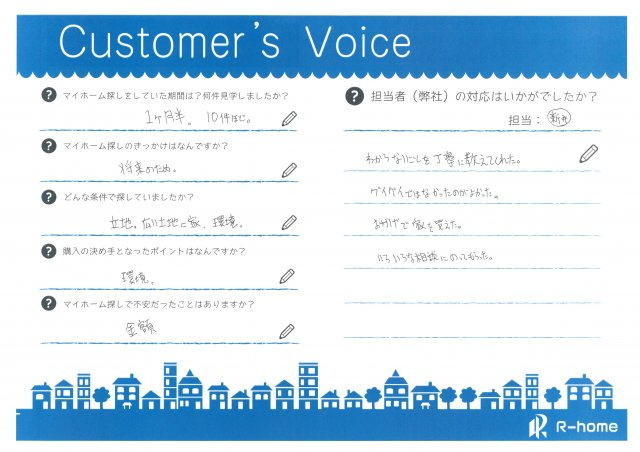 Customer's Voice
マイホーム探しをしていた期間は？何件見学しましたか？
1ヶ月半。 10件ほど。
マイホーム探しのきっかけはなんですか？
将来のため。
どんな条件で探していましたか？
立地。広い土地に家、環境。
購入の決め手となったポイントはなんですか？
環境。
マイホーム探しで不安だったことはありますか？
金額
担当者（弊社）の対応はいかがでしたか？
担当：
わからないことを丁寧に教えてくれた。
ゲイケイではなかったのがよかった。
おかげで家を買えた。
いろいろな相談にのってもらった。
R-home